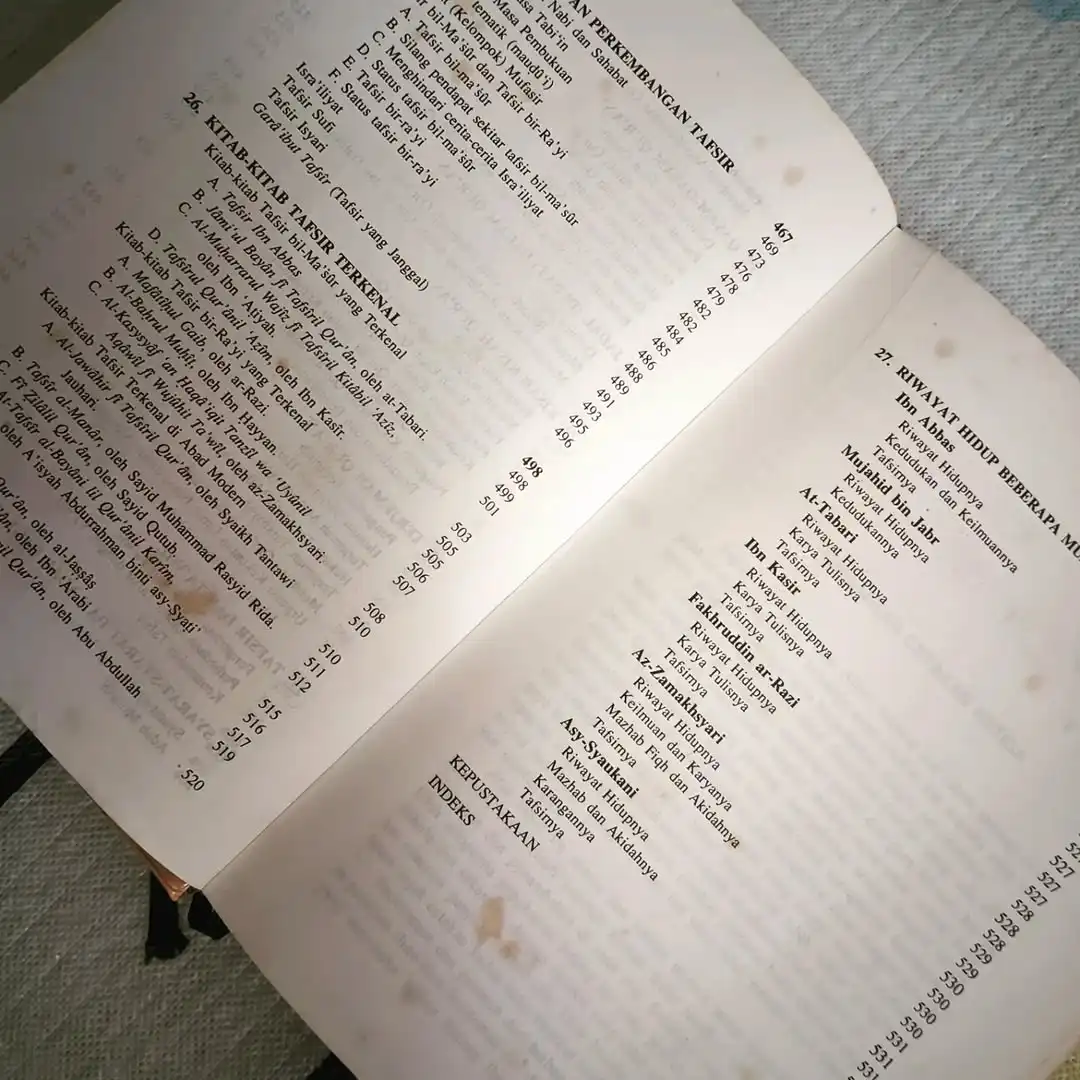 AN PERKEMBANGAN TAFSIR 467
Nabi dan Sahabat 469
Masa Tabi'in 473
Masa Pembukuan 476
tematik (mauḍû'i) 478
(Kelompok) Mufasir 479
bil-Ma'sûr dan Tafsir bir-Ra'yi 482
A. Tafsir bil-ma'sûr 482
B. Silang pendapat sekitar tafsir bil-ma'sûr 484
C. Menghindari cerita-cerita Isra'iliyat 485
D. Status tafsir bil-ma'sûr 486
E. Tafsir bir-ra'yi 488
F. Status tafsir bir-ra'yi 489
Isra'iliyat 491
Tafsir Sufi 493
Tafsir Isyari 495
Garâ'ibut Tafsîr (Tafsir yang Janggal) 496
26. KITAB-KITAB TAFSIR TERKENAL 498
Kitab-kitab Tafsir bil-Ma'sûr yang Terkenal 498
A. Tafsir Ibn Abbas 499
B. Jâmi'ul Bayân fî Tafsîril Qur'ân, oleh at-Tabari. 501
C. Al-Muharrarul Wajîz fî Tafsîril Kitâbil 'Azîz,
oleh Ibn 'Atiyah. 503
D. Tafsîrul Qur'ânil Azîm, oleh Ibn Kasîr. 505
Kitab-kitab Tafsir bir-Ra'yi yang Terkenal 505
A. Mafâtîhul Gaib, oleh ar-Razi. 506
B. Al-Bahrul Muhît, oleh Ibn Hayyan. 507
C. Al-Kasysyâf an Haqâ'iqit Tanzîl wa 'Uyûnil
Aqâwîl fî Wujûhit Ta'wîl, oleh az-Zamakhsyari. 508
Kitab-kitab Tafsir Terkenal di Abad Modern 510
A. Al-Jawâhir fî Tafsîril Qur'ân, oleh Syaikh Tantawi
Jauhari. 510
B. Tafsîr al-Manâr, oleh Sayid Muhammad Rasyid Rida. 511
C. Fî Zilâlil Qur'ân, oleh Sayid Qutub. 512
At-Tafsîr al-Bayâni lil Qur'ânil Karîm,
oleh A'isyah Abdurrahman binti asy-Syaṭi' 515
516
Qur'ân, oleh al-Jaṣṣâṣ 517
oleh Ibn 'Arabi 519
Qur'ân, oleh Abu Abdullah
520
27. RIWAYAT HIDUP BEBERAPA MU
Ibn Abbas
Riwayat Hidupnya
Kedudukan dan Keilmuannya
Tafsirnya
Mujahid bin Jabr
Riwayat Hidupnya
Kedudukannya
At-Tabari
Riwayat Hidupnya
Karya Tulisnya
Tafsirnya
Ibn Kasir
Riwayat Hidupnya
Karya Tulisnya
Tafsirnya
Fakhruddin ar-Razi
Riwayat Hidupnya
Karya Tulisnya
Tafsirnya
Az-Zamakhsyari
Riwayat Hidupnya
Keilmuan dan Karyanya
Mazhab Fiqh dan Akidahnya
Tafsirnya
Asy-Syaukani
Riwayat Hidupnya
Mazhab dan Akidahnya
Karangannya
Tafsirnya
KEPUSTAKAAN
INDEKS
527
527
527
528
528
528
529
529
530
530
530
531
531